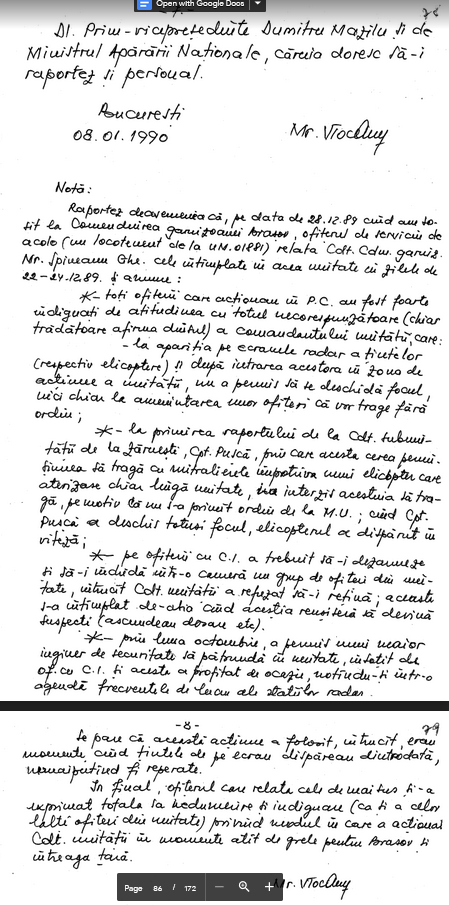 Open with Google Docs
Dl. Prim-vicepreședinte Dumitru Mazilu și de
Ministrul Apărării Naționale, căruia doresc să-i
raportez și personal.
București
08.01.1990
Mr.
Notă:
Raportez deasemenea că, pe data de 28.12.89 cînd am so-
sit la Comenduirea garnizoanei Brașov, ofițerul de serviciu de
acolo (un locotenent de la UM.01881) relata Cdt. Cdm. garniz.
Mr. Spineanu Ghe. cele întîmplate în acea unitate în zilele de
22-24.12.89. și anume:
*- toți ofițerii care acționau în P.C. au fost foarte
indignați de atitudinea cu totul necorespunzătoare (chiar
trădătoare afirma dînsul) a comandantului unității, care:
- la apariția pe ecranele radar a țintelor
(respectiv elicoptere) și după intrarea acestora în zona de
acțiune a unității, nu a permis să se deschidă focul,
nici chiar la amenințarea unor ofițeri că vor trage fără
ordin;
*- la primirea raportului de la Cdt. subuni-
tății de la Zărnești, Cpt. Pușcă, prin care acesta cerea permi-
siunea să tragă cu mitralierele împotriva unui elicopter care
aterizase chiar lîngă unitate, interzis acestuia să tra-
gă, pe motiv că nu s-a primit ordin de la M.U.; cînd Cpt.
Pușcă a deschis totuși focul, elicopterul a dispărut în
viteză;
*- pe ofițerii cu C.I. a trebuit să-i dezarmeze
și să-i închidă într-o cameră un grup de ofițeri din uni-
tate, întrucît Cdt. unității a refuzat să-i rețină; aceasta
s-a întîmplat de-abia cînd aceștia reușiseră să devină
suspecți (ascundeau dosare etc).
*- prin luna octombrie, a permis unui maior
inginer de securitate să pătrundă în unitate, însoțit de
of. cu C.I. și acesta a profitat de ocazie, notîndu-și într-o
agendă frecvențele de lucru ale stațiilor radar.
-8-
Se pare că această acțiune a folosit, întrucît, erau
momente cînd țintele de pe ecran dispăreau dintrodată,
nemaiputînd fi reperate.
În final, ofițerul care relata cele de mai sus și-a
exprimat totala sa nedumerire și indignare (ca și a celor-
lalți ofițeri din unitate) privind modul în care a acționat
Cdt. unității în momente atît de grele pentru Brașov și
întreaga țară.
Mr.
Page 86 / 172